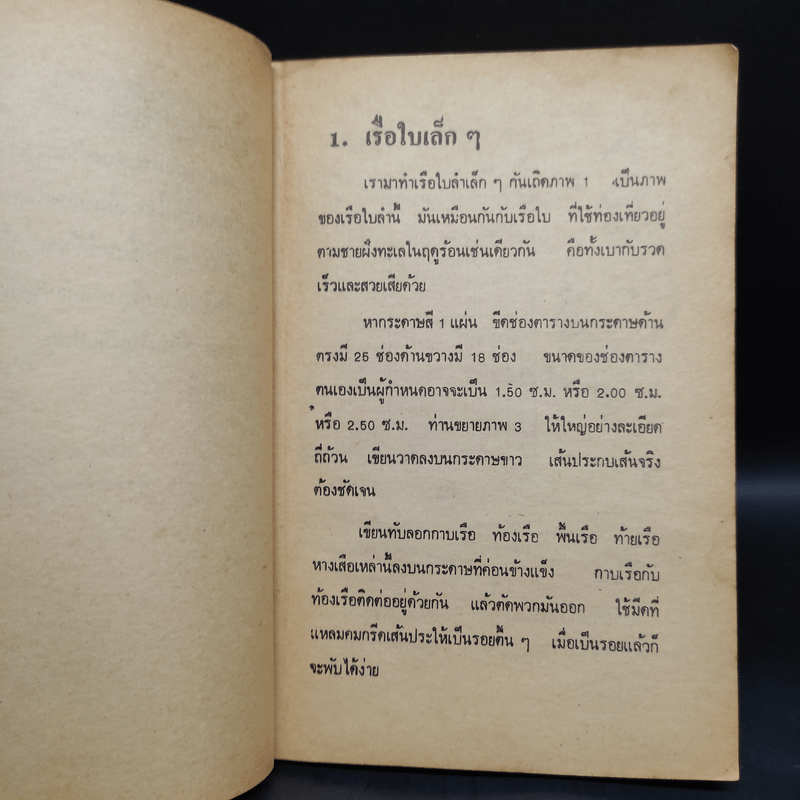 1. เรือใบเล็ก ๆ
เรามาทำเรือใบลำเล็ก ๆ กันเถิดภาพ 1 เป็นภาพ
ของเรือใบลำนี้ มันเหมือนกันกับเรือใบ ที่ใช้ท่องเที่ยวอยู่
ตามชายฝั่งทะเลในฤดูร้อนเช่นเดียวกัน คือทั้งเบากับรวด
เร็วและสวยเสียด้วย
หากระดาษสี 1 แผ่น ขีดช่องตารางบนกระดาษด้าน
ตรงมี 25 ช่องด้านขวางมี 18 ช่อง ขนาดของช่องตาราง
ตนเองเป็นผู้กำหนดอาจจะเป็น 1.50 ซ.ม. หรือ 2.00 ซ.ม.
หรือ 2.50 ซ.ม. ท่านขยายภาพ 3 ให้ใหญ่อย่างละเอียด
ถี่ถ้วน เขียนวาดลงบนกระดาษขาว เส้นประกบเส้นจริง
ต้องชัดเจน
เขียนทับลอกกาบเรือ ท้องเรือ พื้นเรือ ท้ายเรือ
หางเสือเหล่านี้ลงบนกระดาษที่ค่อนข้างแข็ง กาบเรือกับ
ท้องเรือติดต่ออยู่ด้วยกัน แล้วตัดพวกมันออก ใช้มีดที่
แหลมคมกรีดเส้นประให้เป็นรอยตื้น ๆ เมื่อเป็นรอยแล้วก็
จะพับได้ง่าย